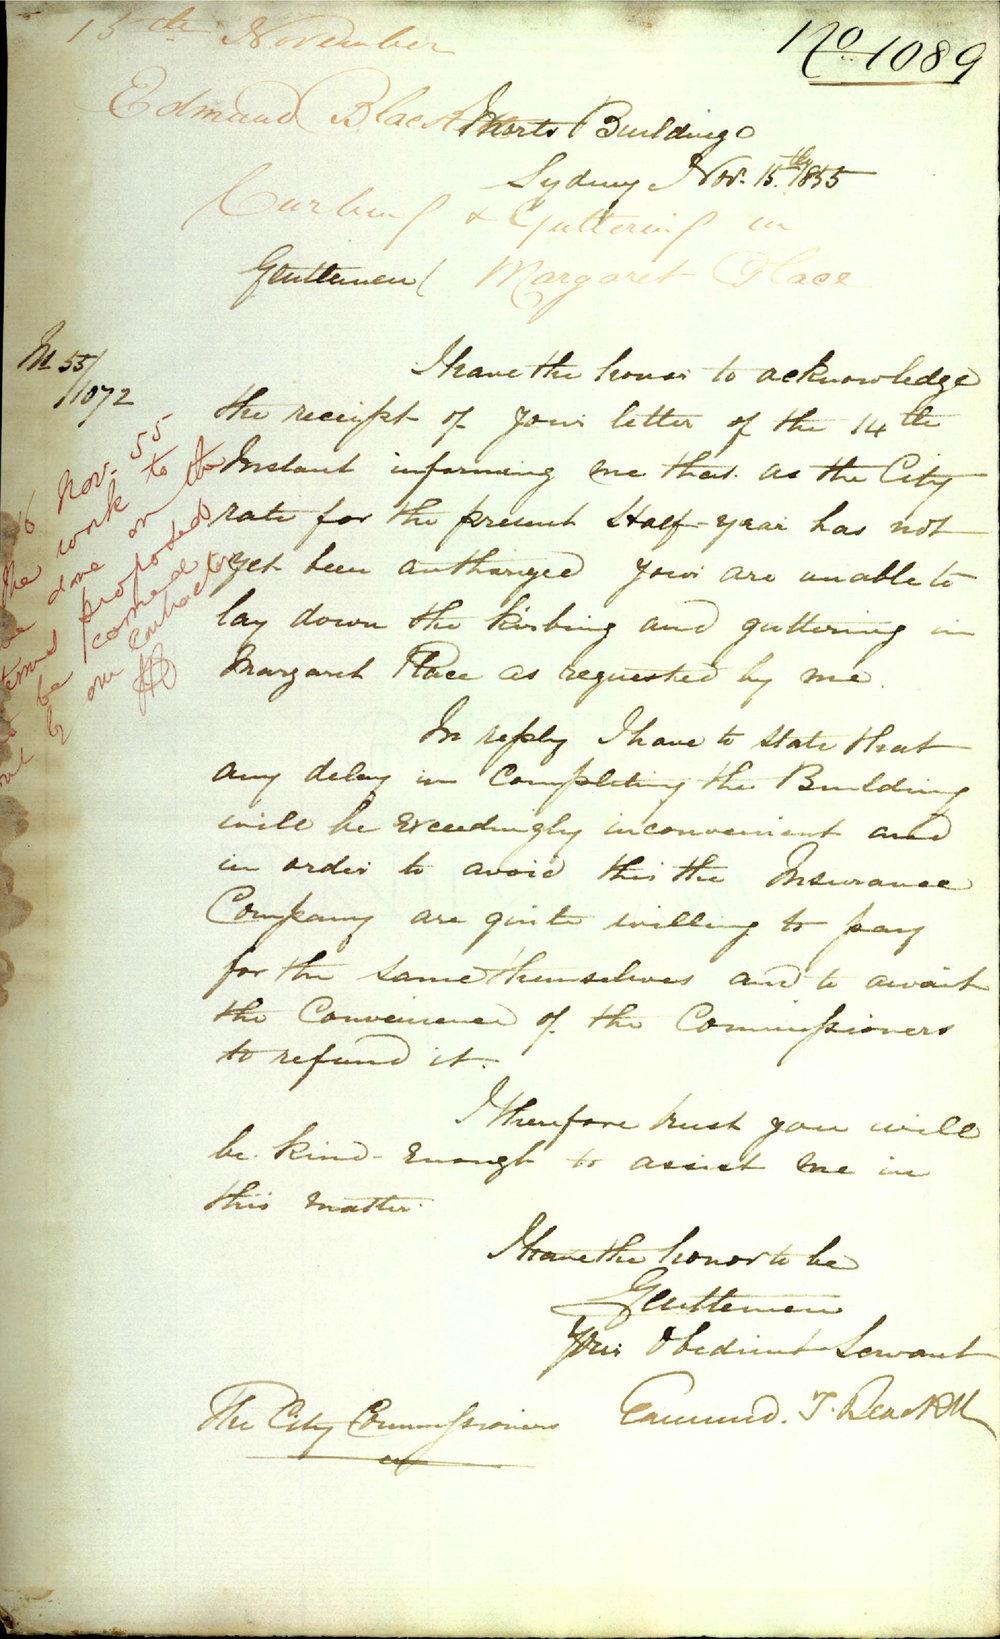 15th November
No 1089
Edmund Blackett
Morts Buildings
Sydney Nov. 15th 1855
Curbing & Guttering in
Margaret Place
Gentlemen
M 55/
/1072
I have the honor to acknowledge
the receipt of your letter of the 14th
Instant informing me that as the City
rate for the present Half-year has not
yet been authorized you are unable to
lay down the kirbing and guttering in
Margaret Place as requested by me.
16 Nov. 55
The work to
be done on the
terms proposed
to be carried
out by our contractor
In reply I have to state that
any delay in completing the Building
will be exceedingly inconvenient and
in order to avoid this the Insurance
Company are quite willing to pay
for the same themselves and to await
the Convenience of the Commissioners
to refund it.
I therefore trust you will
be kind enough to assist me in
this matter.
I have the honor to be
Gentlemen
Your Obedient Servant
Edmund. T. Blackett
The City Commissioners